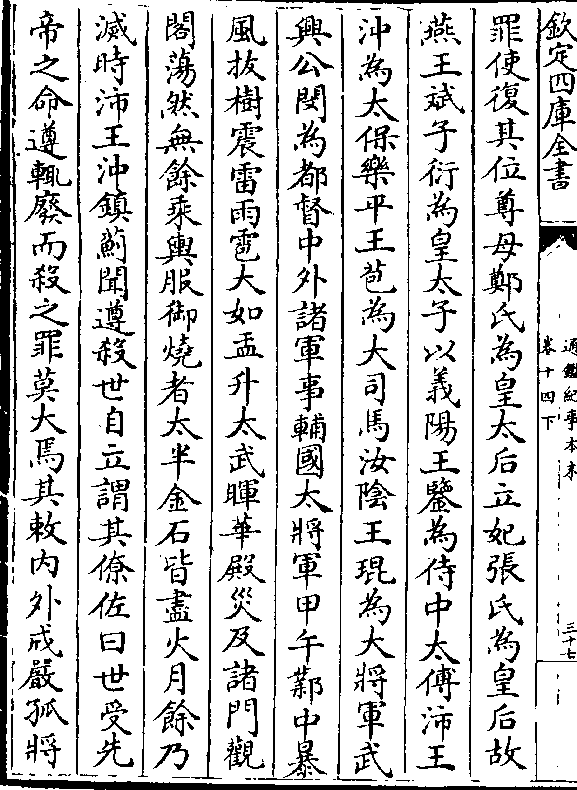 欽定四庫全書
通鑑紀事本末
卷十四下
三十七
罪使復其位尊母鄭氏為皇太后立妃張氏為皇后故
燕王斌子衍為皇太子以義陽王鑒為侍中太傅沛王
沖為太保樂平王苞為大司馬汝陰王琨為大將軍武
興公閔為都督中外諸軍事輔國大將軍甲午鄴中暴
風拔樹震雷雨雹大如盂升太武暉華殿災及諸門觀
閣蕩然無餘乘輿服御燒者太半金石皆盡火月餘乃
滅時沛王沖鎮薊聞遵殺世自立謂其僚佐曰世受先
帝之命遵輒廢而殺之罪莫大焉其敕内外戒嚴孤將